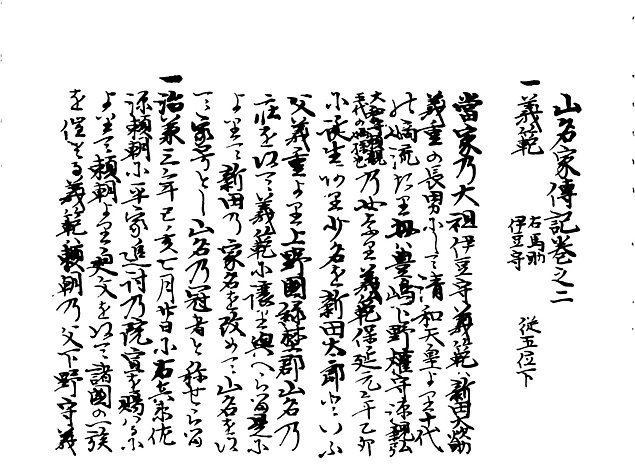 山名家傳記巻之二
一義範 石馬助 伊豆守 従五位下
當家乃大祖伊豆守義範ハ新田大炊助
義重の長男にして清和天皇より十代
の嫡流たり母ハ豊嶋下野権守源親弘
乃女なり義範保延元年乙卯
に誕生あり少名を新田太郎といふ
父義重より上野國緑埜郡山名乃
庄を以て義範に譲り与へらる是に
よりて新田乃家名を改めて山名を以
て家号とし山名乃冠者と称せらる
一治承三年己亥七月廿日に右兵衛佐
源頼朝に平家追討乃院宣を賜はるに
よりて頼朝より廻文を以て諸國の一族
を催さる義範ハ頼朝乃父下野守義